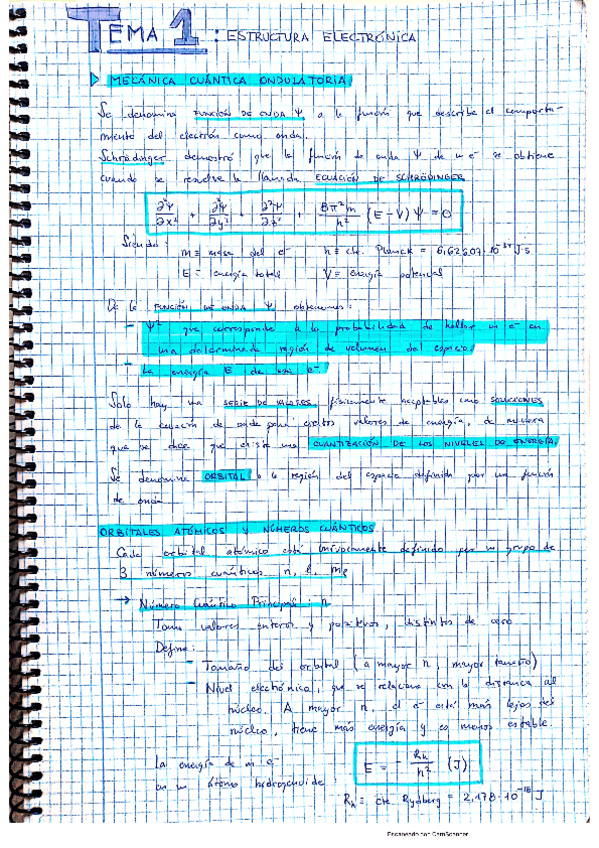 TEMA 1: ESTRUCTURA ELECTRÓNICA
▷ MECÁNICA CUÁNTICA ONDULATORIA
Se denomina FUNCIÓN DE ONDA Ψ a la función que describe el comporta-
miento del electrón como onda.
Schrödinger demostró que la función de onda Ψ de un e⁻ se obtiene
cuando se resuelve la llamada ECUACIÓN DE SCHRÖDINGER
∂²Ψ/∂x² + ∂²Ψ/∂y² + ∂²Ψ/∂z² + 8π²m/h² (E-V) Ψ = 0
Siendo:
m ≡ masa del e⁻ h ≡ cte. Planck = 6,62607·10⁻³⁴ J·s
E = energía total V = energía potencial
De la FUNCIÓN DE ONDA Ψ obtenemos:
- Ψ² que corresponde a la probabilidad de hallar un e⁻ en
una determinada región de volumen del espacio.
- La energía E de ese e⁻
Solo hay una SERIE DE VALORES físicamente aceptables como SOLUCIONES
de la ecuación de onda para ciertos valores de energía, de manera
que se dice que existe una CUANTIZACIÓN DE LOS NIVELES DE ENERGÍA.
Se denomina ORBITAL a la región del espacio definida por una función
de onda
ORBITALES ATÓMICOS Y NÚMEROS CUÁNTICOS
Cada orbital atómico está unívocamente definido por un grupo de
3 números cuánticos n, l, mₗ
→ Número Cuántico Principal: n
Toma valores enteros y positivos, distintos de cero
Define:
- Tamaño del orbital (a mayor n, mayor tamaño)
- Nivel electrónico, que se relaciona con la distancia al
núcleo. A mayor n, el e⁻ está más lejos del
núcleo, tiene más energía y es menos estable.
La energía de un e⁻
en un átomo hidrogenoide:
E = - Rₕ/n² (J)
Rₕ = cte Rydberg = 2,178·10⁻¹⁸ J
Escaneado con CamScanner